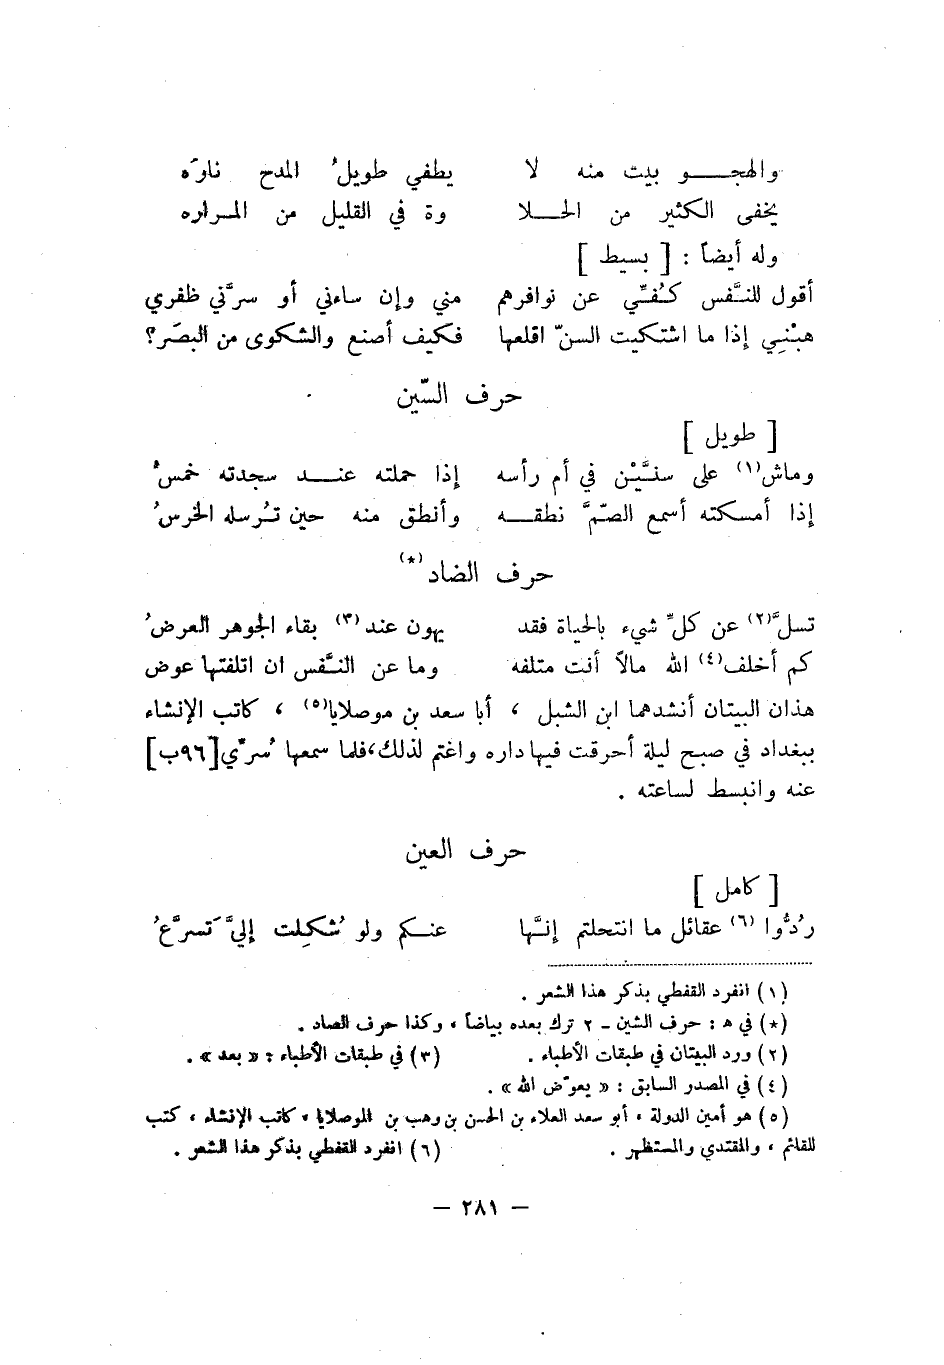 والهجـــو بيت منه لا يطفي طويلُ المدح نارَه
يخفى الكثير من الحـــلا وة في القليل من المـراره
وله أيضاً : [ بسيط ]
أقول للنَّفس كُفِّي عن نوافرهم مني وإن ساءني أو سرَّني ظفري
هبْنِي إذا ما اشتكيت السنّ اقلعها فكيف أصنع والشكوى من البصَر؟
حرف السّين
[ طويل ]
وماش(١) على سنَّيْن في أم رأسه إذا حملته عنـــد سجدته خمسُ
إذا أمسكته أسمع الصّمَّ نطقـــه وأنطق منه حين تُرسله الخرسُ
حرف الضاد(*)
تسلَّ(٢) عن كلِّ شيء بالحياة فقد يهون عند(٣) بقاء الجوهر العرضُ
كم أخلف(٤) الله مالاً أنت متلفه وما عن النَّفس ان اتلفتها عوض
هذان البيتان أنشدهما ابن الشبل ، أبا سعد بن موصلايا(٥) ، كاتب الإنشاء
ببغداد في صبح ليلة أحرقت فيها داره واغتم لذلك،فلما سمعها سُرّي[٩٦ب]
عنه وانبسط لساعته .
حرف العين
[ كامل ]
ردُّوا (٦) عقائل ما انتحلتم إنَّها عنـكم ولو شُكِلت إليَّ تَسرَّعُ
(١) انفرد القفطي بذكر هذا الشعر .
(*) في ه : حرف الشين - ٢ ترك بعده بياضاً ، وكذا حرف الصاد .
(٢) ورد البيتان في طبقات الأطباء . (٣) في طبقات الأطباء : « بعد » .
(٤) في المصدر السابق : « يعوّض الله » .
(٥) هو أمين الدولة ، أبو سعد العلاء بن الحسن بن وهب بن الموصلايا ، كاتب الإنشاء ، كتب
للقائم ، والمقتدي والمستظهر . (٦) انفرد القفطي بذكر هذا الشعر .
— ٢٨١ —